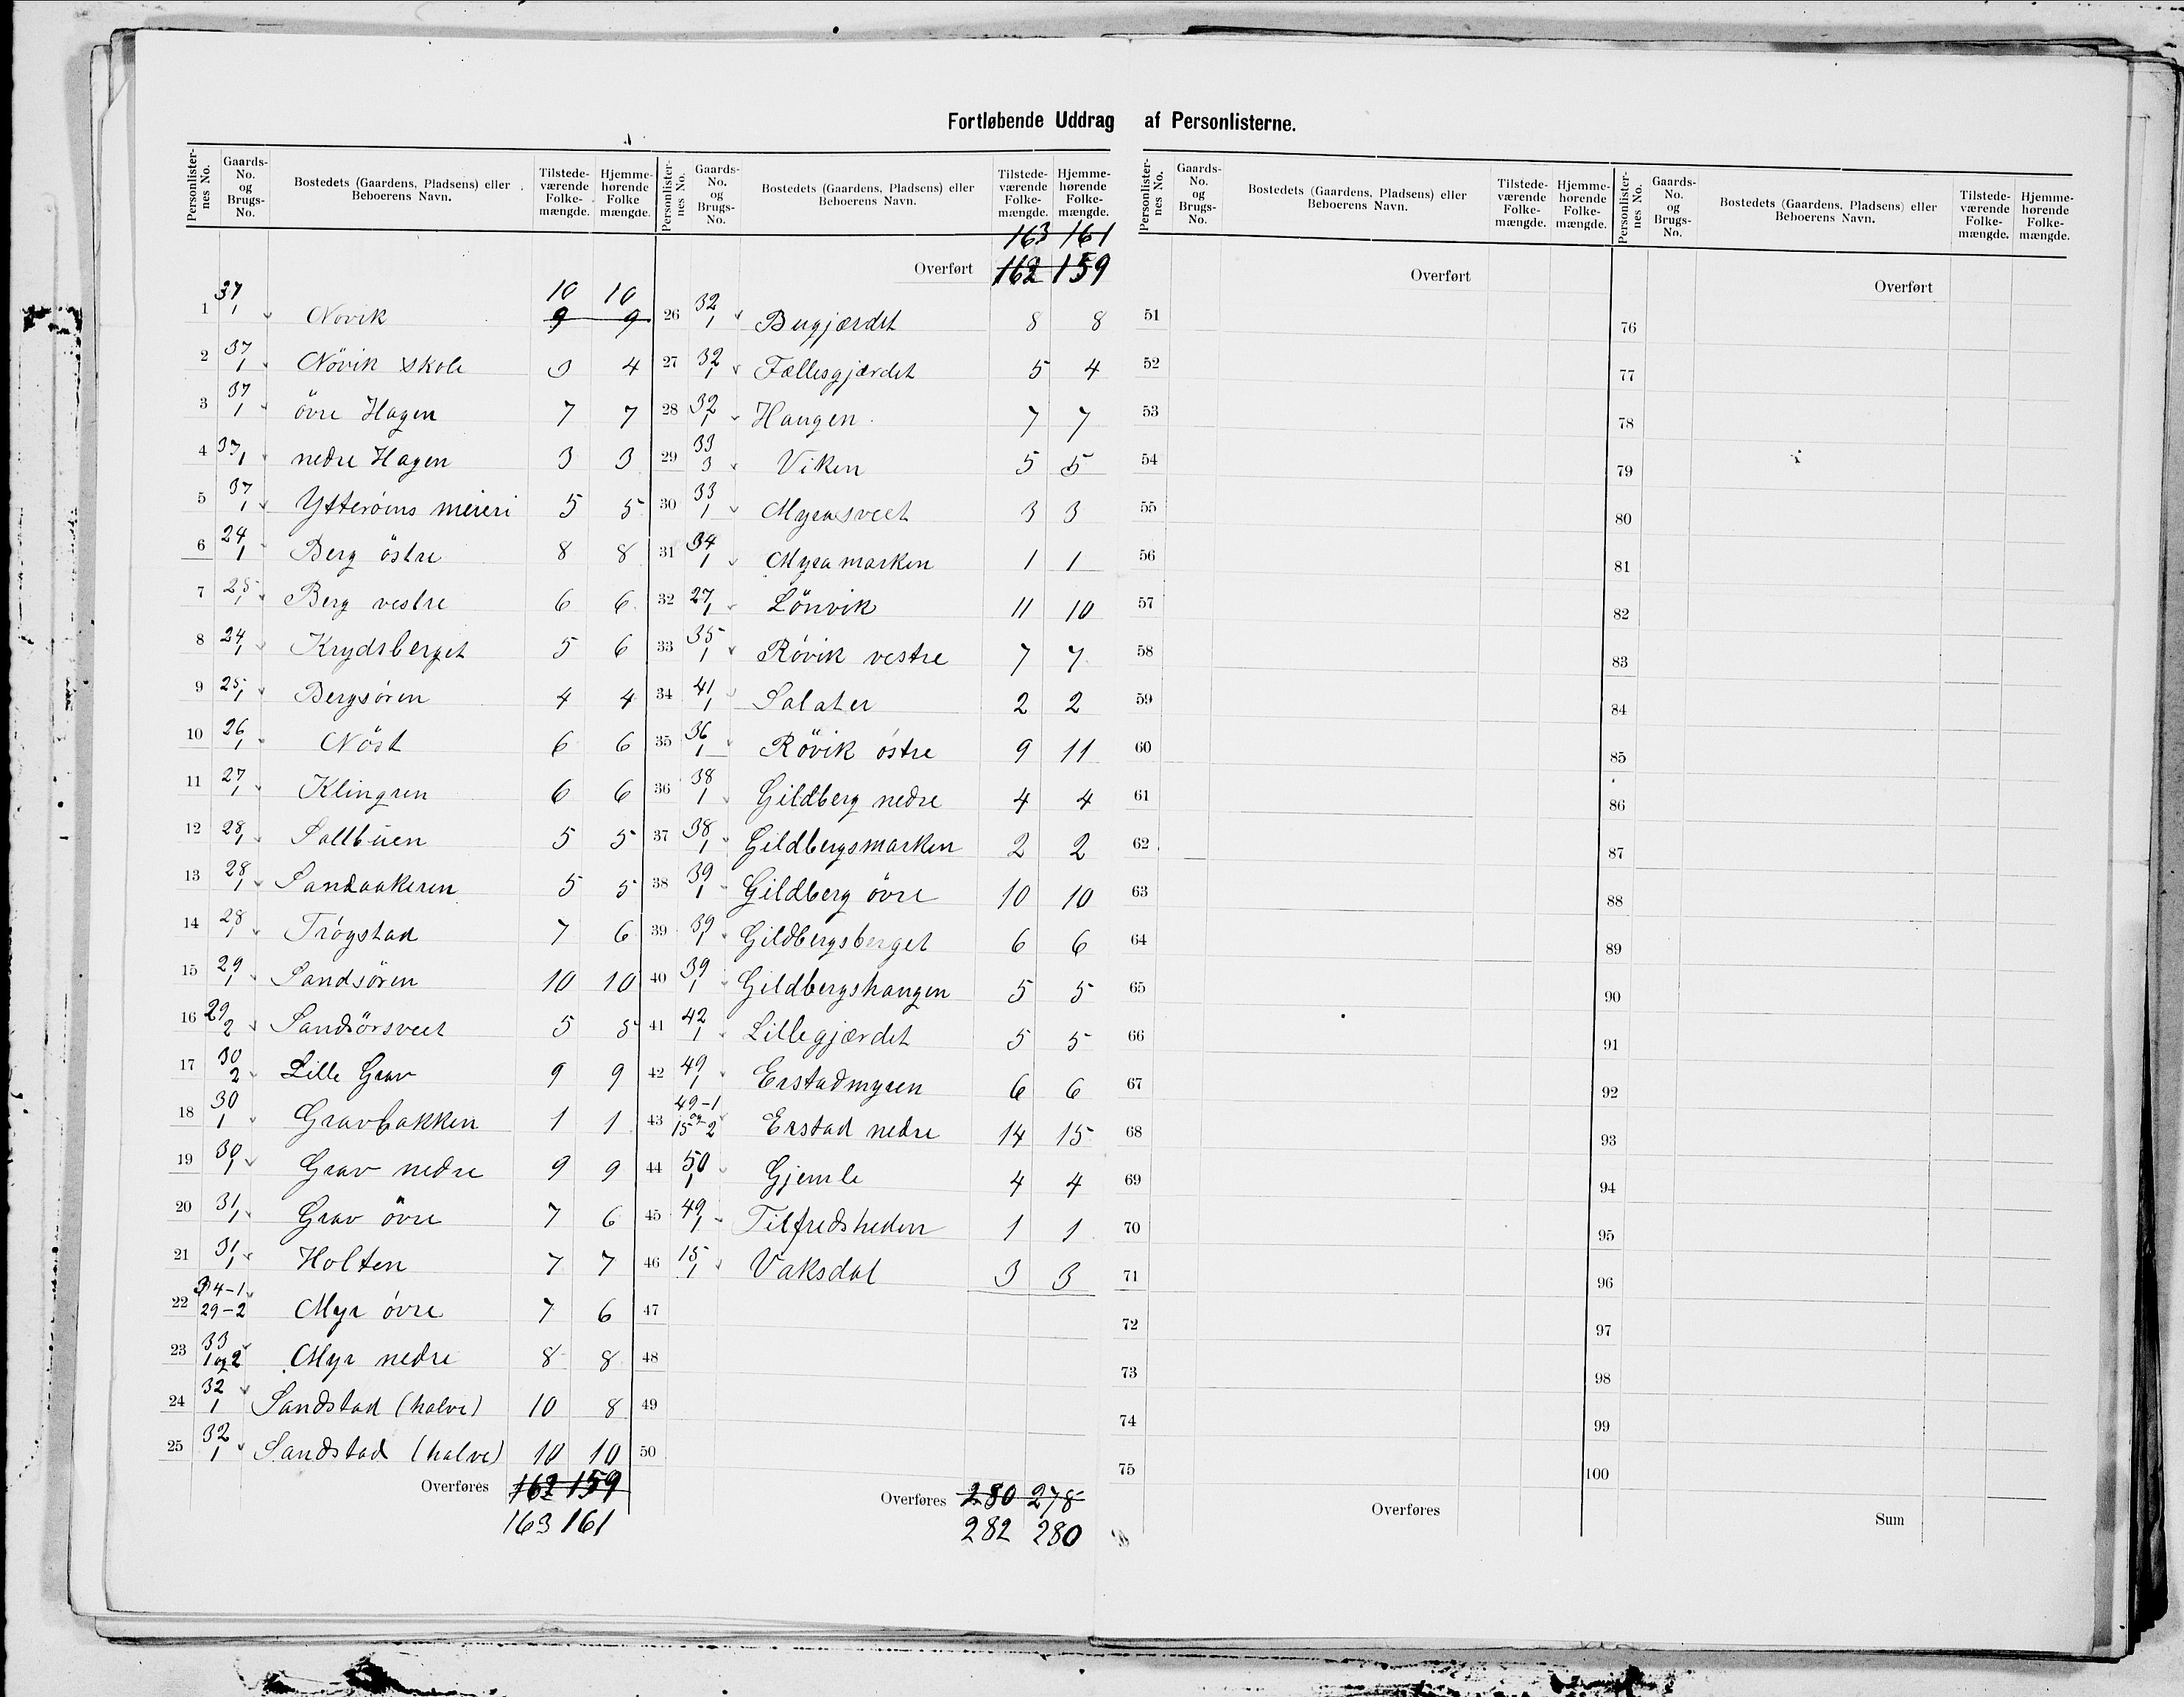 Fortløbende Uddrag af Personlisterne.
Personlisternes No. Gaards-No. og Brugs-No. Bostedets (Gaardens, Pladsens) eller Beboerens Navn. Tilstedeværende Folkemængde. Hjemmehørende Folkemængde.
10 10
1 37/1 Növik 9 9
2 37/1 Növik skole 3 4
3 37/1 övre Hagen 7 7
4 37/1 nedre Hagen 3 3
5 37/1 Ytteröens meieri 5 5
6 24/1 Berg östre 8 8
7 25/1 Berg vestre 6 6
8 24/1 Krydsberget 5 6
9 25/1 Bergsören 4 4
10 26/1 Nöst 6 6
11 27/1 Klingren 6 6
12 28/1 Saltbuen 5 5
13 28/1 Sandaakeren 5 5
14 28/1 Trögstad 7 6
15 29/1 Sandsören 10 10
16 29/2 Sandörsveet 5 5
17 30/2 Lille Grav 9 9
18 30/1 Gravbakken 1 1
19 30/1 Grav nedre 9 9
20 31/1 Grav övre 7 6
21 31/1 Holten 7 7
22 34-1 29-2 Myr övre 7 6
23 33 1og2 Myr nedre 8 8
24 32/1 Sandstad (halve) 10 8
25 32/1 Sandstad (halve) 10 10
Overføres 162 159
163 161
Personlisternes No. Gaards-No. og Brugs-No. Bostedets (Gaardens, Pladsens) eller Beboerens Navn. Tilstedeværende Folkemængde. Hjemmehørende Folkemængde.
163 161
Overført 162 159
26 32/1 Bugjærdet 8 8
27 32/1 Fællesgjærdet 5 4
28 32/1 Haugen 7 7
29 33/3 Viken 5 5
30 33/1 Myrasveet 3 3
31 34/1 Myramarken 1 1
32 27/1 Lönvik 11 10
33 35/1 Rövik vestre 7 7
34 41/1 Salater 2 2
35 36/1 Rövik östre 9 11
36 38/1 Gildberg nedre 4 4
37 38/1 Gildbergsmarken 2 2
38 39/1 Gildberg övre 10 10
39 39/1 Gildbergsberget 6 6
40 39/1 Gildbergshaugen 5 5
41 42/1 Lillegjærdet 5 5
42 49/1 Erstadmyren 6 6
43 49-1 og 15 2 Erstad nedre 14 15
44 50/1 Gjemle 4 4
45 49/1 Tilfredsheden 1 1
46 15/1 Vaksdal 3 3
47
48
49
50
Overføres 280 278
282 280
Personlisternes No. Gaards-No. og Brugs-No. Bostedets (Gaardens, Pladsens) eller Beboerens Navn. Tilstedeværende Folkemængde. Hjemmehørende Folkemængde.
Overført
51
52
53
54
55
56
57
58
59
60
61
62
63
64
65
66
67
68
69
70
71
72
73
74
75
Overføres
Personlisternes No. Gaards-No. og Brugs-No. Bostedets (Gaardens, Pladsens) eller Beboerens Navn. Tilstedeværende Folkemængde. Hjemmehørende Folkemængde.
Overført
76
77
78
79
80
81
82
83
84
85
86
87
88
89
90
91
92
93
94
95
96
97
98
99
100
Sum